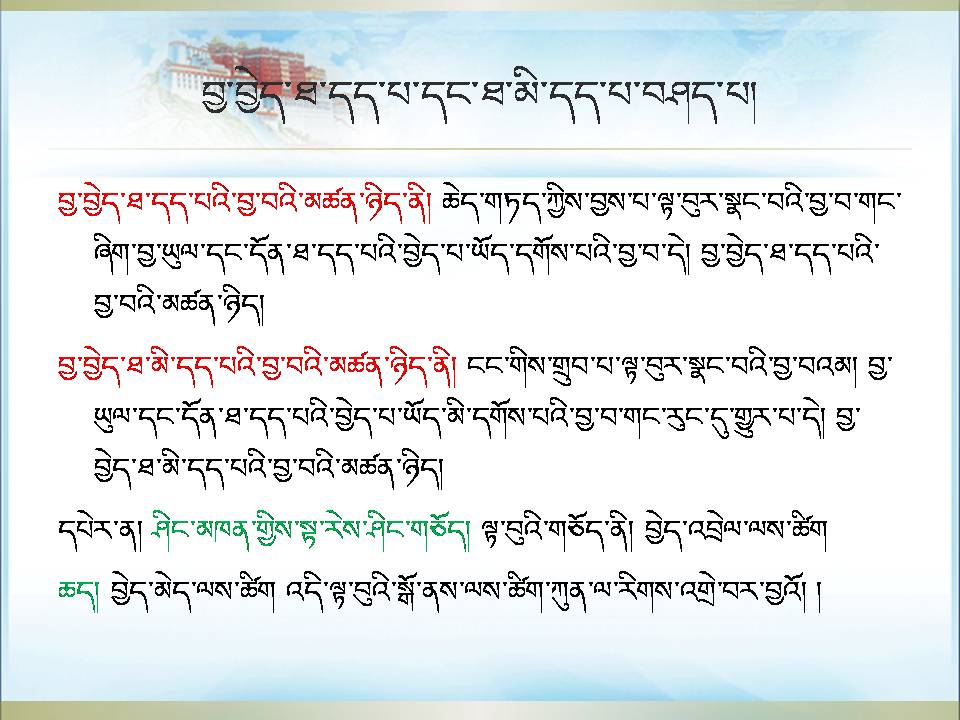 བྱ་བྱེད་ཐ་དད་པ་དང་ཐ་མི་དད་པ་བཤད་པ།
བྱ་བྱེད་ཐ་དད་པའི་བྱ་བའི་མཚན་ཉིད་ནི། ཆེད་གཏད་ཀྱིས་བྱས་པ་ལྟ་བུར་སྣང་བའི་བྱ་བ་གང་
ཞིག་བྱ་ཡུལ་དང་དོན་ཐ་དད་པའི་བྱེད་པ་ཡོད་དགོས་པའི་བྱ་བ་དེ། བྱ་བྱེད་ཐ་དད་པའི་
བྱ་བའི་མཚན་ཉིད།
བྱ་བྱེད་ཐ་མི་དད་པའི་བྱ་བའི་མཚན་ཉིད་ནི། ངང་གིས་གྲུབ་པ་ལྟ་བུར་སྣང་བའི་བྱ་བའམ། བྱ་
ཡུལ་དང་དོན་ཐ་དད་པའི་བྱེད་པ་ཡོད་མི་དགོས་པའི་བྱ་བ་གང་རུང་དུ་གྱུར་པ་དེ། བྱ་
བྱེད་ཐ་མི་དད་པའི་བྱ་བའི་མཚན་ཉིད།
དཔེར་ན། ཤིང་མཁན་གྱིས་སྟ་རེས་ཤིང་གཅོད། ལྟ་བུའི་གཅོད་ནི། བྱེད་འབྲེལ་ལས་ཚིག
ཆད། བྱེད་མེད་ལས་ཚིག འདི་ལྟ་བུའི་སྒོ་ནས་ལས་ཚིག་ཀུན་ལ་རིགས་འགྲེ་བར་བྱའོ། །